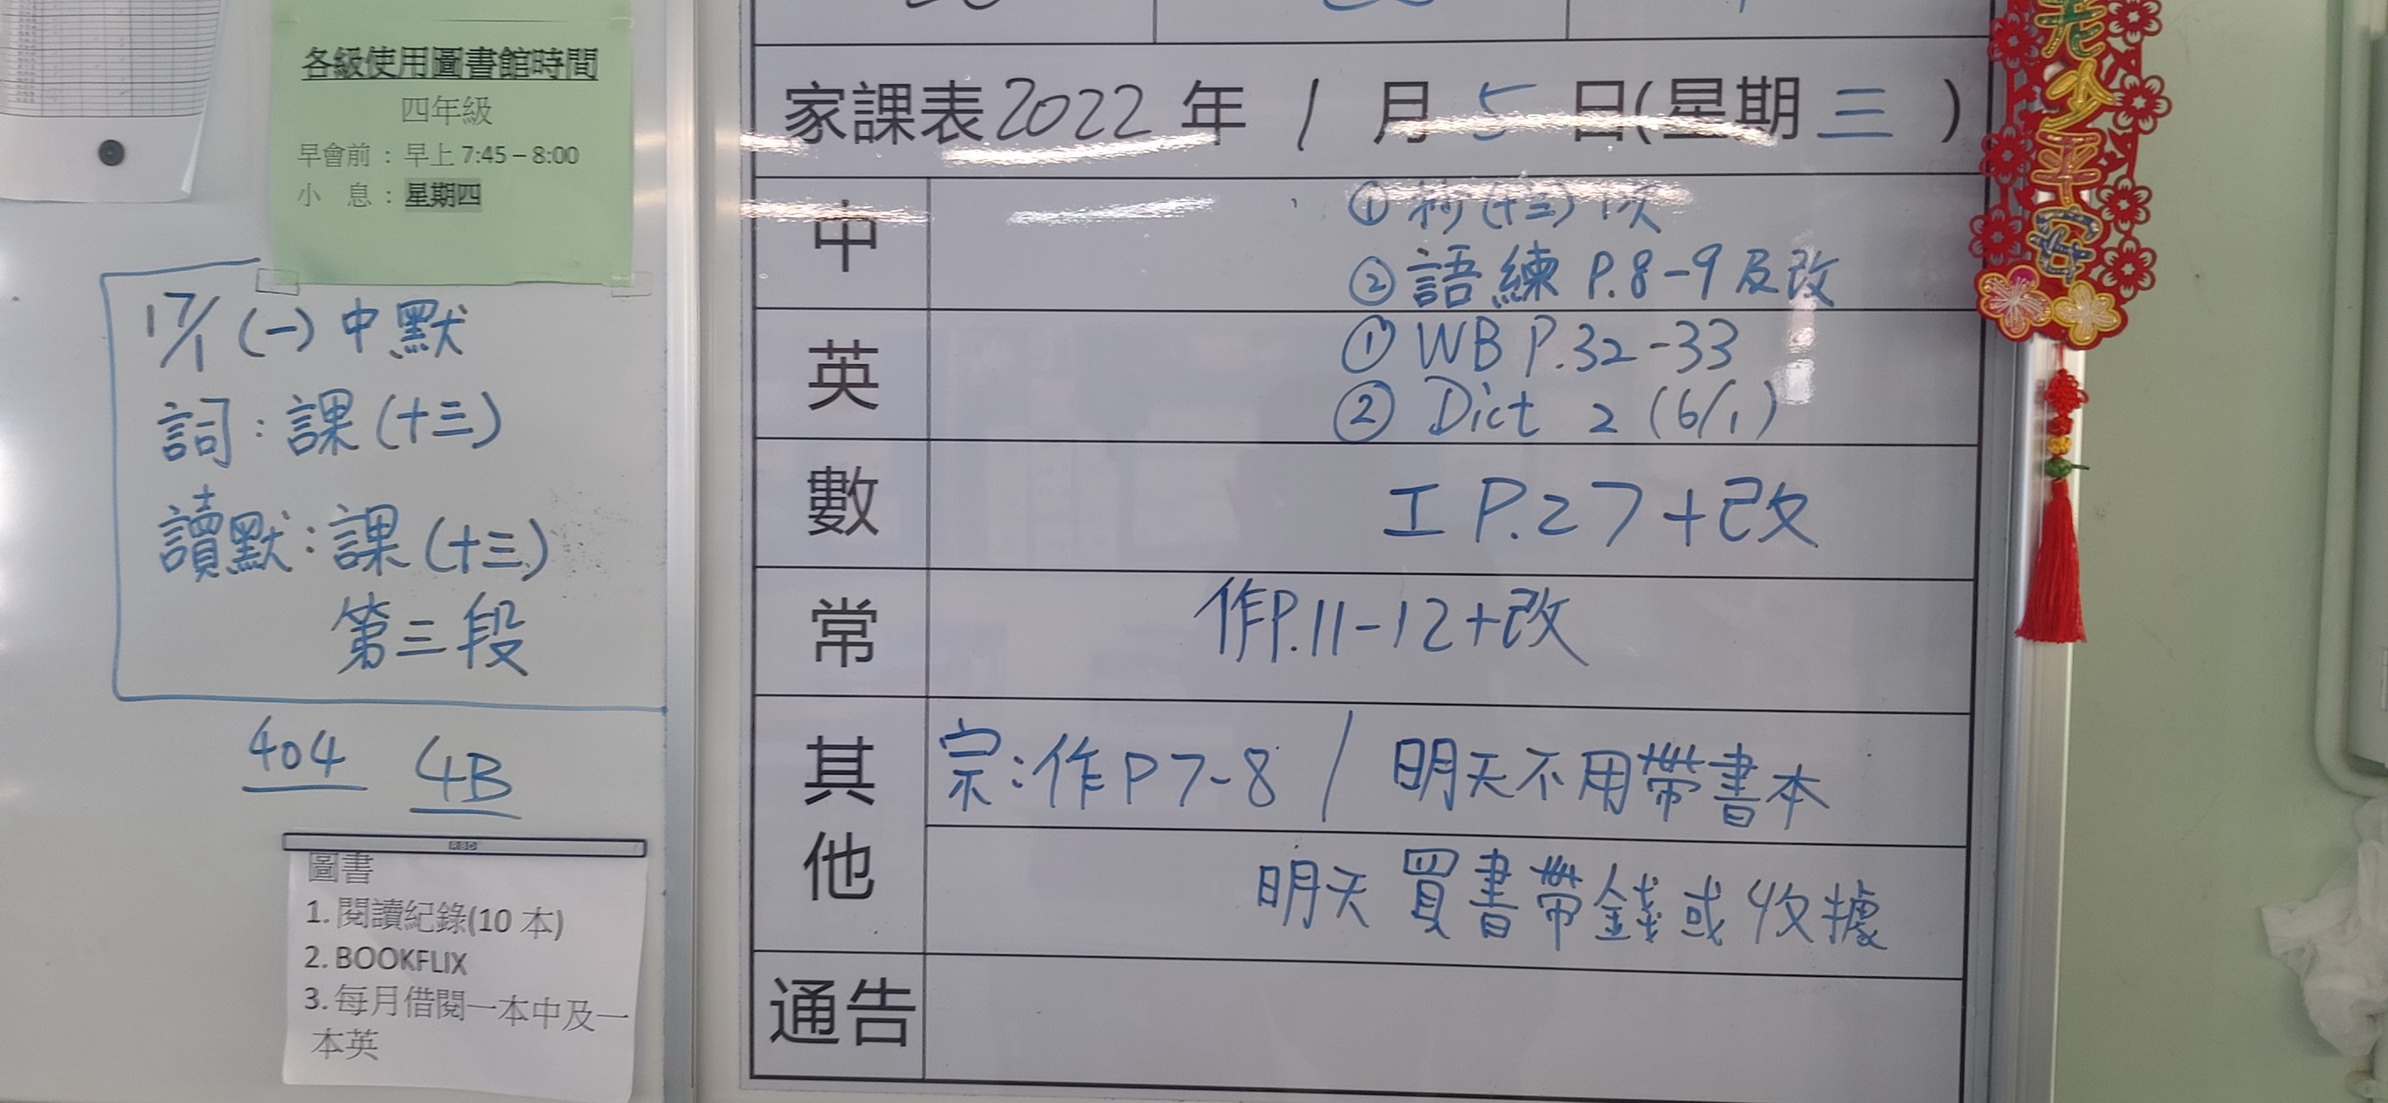 各級使用圖書館時間
四年級
早會前 : 早上 7:45 – 8:00
小 息 : 星期四
17/1 (一) 中默
詞 : 課 (十三)
讀默 : 課 (十三)
第三段
404 4B
圖書
1. 閱讀紀錄(10 本)
2. BOOKFLIX
3. 每月借閱一本中及一
本英
家課表 2022 年 1 月 5 日(星期 三 )
中
① (十三)
② 語練 P.8-9 及改
英
① WB P.32-33
② Dict 2 (6/1)
數
工 P.27+改
常
作P.11-12+改
其他
宗:作P7-8 / 明天不用帶書本
明天買書帶錢或收據
通告
老少平安